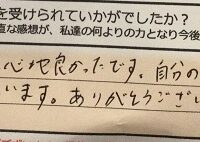 を受けられていかがでしたか？
直な感想が、私達の何よりの力となり今後
心地良かったです。自分の
います。ありがとうござい